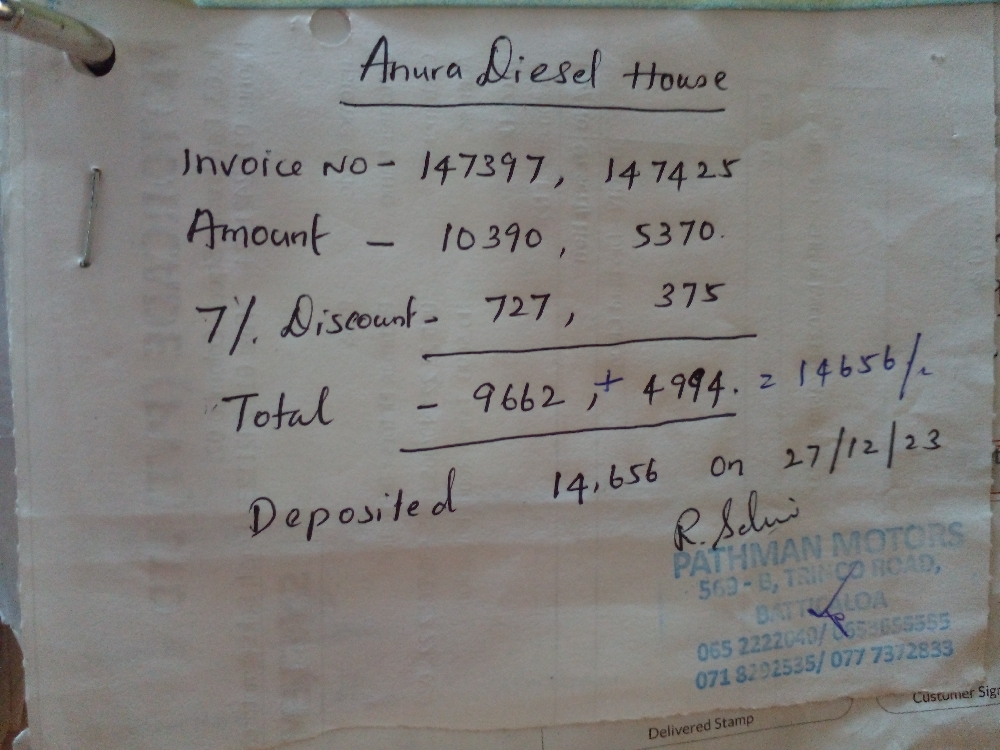 Anura Diesel House
Invoice NO - 147397, 147425
Amount - 10390, 5370.
7% Discount - 727, 375
Total - 9662, + 4994. = 14656/-
Deposited 14,656 on 27/12/23
R. Selvi
PATHMAN MOTORS
569 - B, TRINCO ROAD,
BATTICALOA
065 2222040/
071 8292535/ 077 7372833
Customer Sig
Delivered Stamp